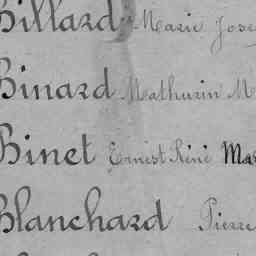 Billard Marie Jose
Binard Mathurin M
Binet Ernest Réné Mar
Blanchard Pierre